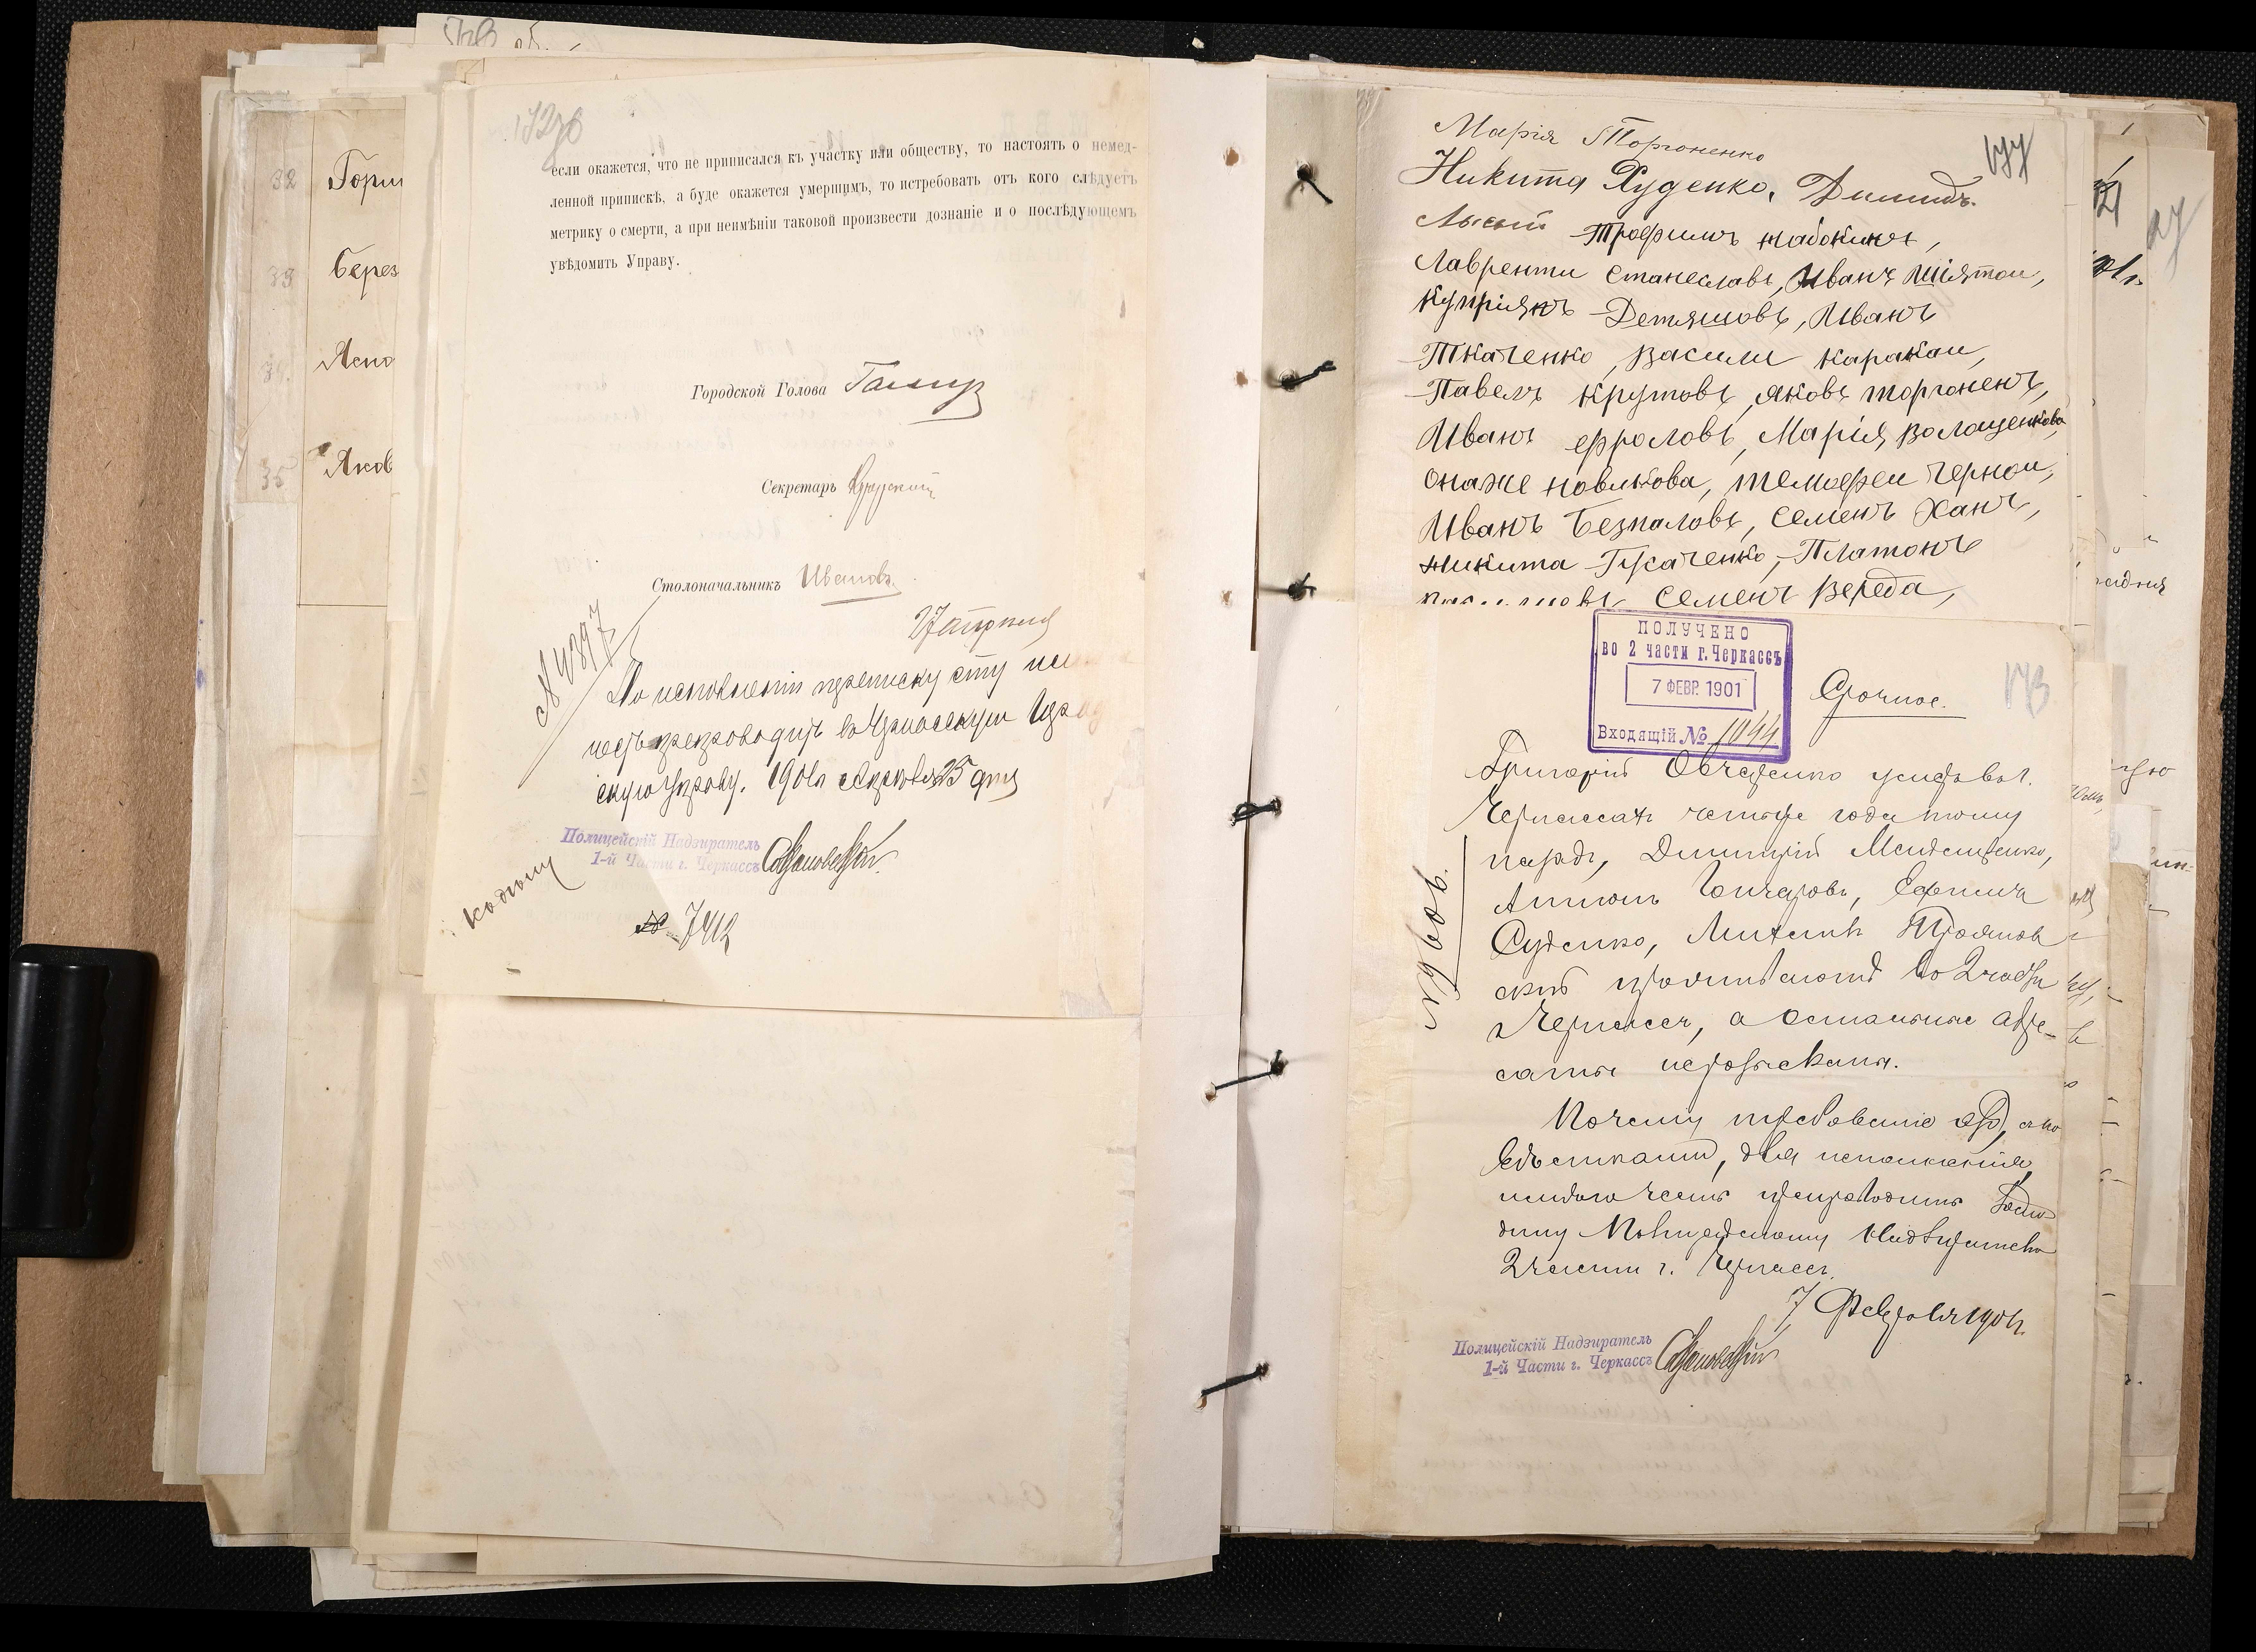 32 Горш
33 Берез
34. Ясно
35 Яков
если окажется, что не приписался къ участку или обществу, то настоять о немед-
ленной припискѣ, а буде окажется умершимъ, то истребовать отъ кого слѣдуетъ
метрику о смерти, а при неимѣніи таковой произвести дознаніе и о послѣдующемъ
увѣдомить Управу.
Городской Голова
Секретарь
Столоначальникъ Ивановъ
27 апрѣля
№ 4897
По исполненіи переписку эту
препроводить въ Черкасскую
скую Управу. 1901 г. Апрѣля 25 дня
Полицейскій Надзиратель
1-й Части г. Черкассъ
Къ дѣлу
№ 7412
Марія Торгоненко
177
Никита Руденко, Димидъ
Лысый Трофимъ Набокинъ,
Лаврентии Станеславъ, Иванъ Шіятои,
Купріянъ Детяшовъ, Иванъ
Ткаченко, Васили Каракаи,
Павелъ Крутовъ, Яковъ торгоненъ,
Иванъ ефроловъ, Марія Волащенкова,
онаже новикова, темофеи Чернои,
Иванъ Безпаловъ, Семенъ Ханъ,
никита Гусаченко, Платонъ
Семенъ Вереда,
ПОЛУЧЕНО
во 2 части г. Черкассъ
7 ФЕВР. 1901
Входящій № 1044
Срочное.
173
Григорій Овчаренко умеръ въ г.
Черкассахъ четыре года тому
назадъ, Димитрій
Антонъ Гончаровъ, Ефимъ
Руденко, Михаилъ Троянов
скій проживаютъ во 2 части
г. Черкассъ, а остальные адре-
саты неразысканы.
№ 9 606.
Почему требованіе это, съ по
вѣстками, для исполненія
имѣю честь препроводить Госпо
дину Полицейскому Надзирателю
2 части г. Черкассъ.
7 Февраля 1901 г.
Полицейскій Надзиратель
1-й Части г. Черкассъ